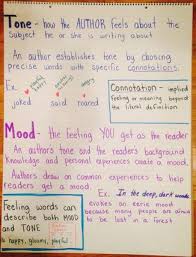 Tone - how the AUTHOR feels about the
subject he or she is writing about
An author establishes tone by choosing
precise words with specific connotations.
Ex. playful happy angry
joked said roared
Connotation - implied
feeling or meaning beyond
the literal definition
Mood - the feeling YOU get as the reader
An authors tone and the readers background
Knowledge and personal experiences create a mood.
Authors draw on common experiences to help
readers get a mood.
Ex. In the deep, dark woods
evokes an eerie mood
because many people are afraid
to be lost in a forest
Feeling words can
describe both MOOD
and TONE
happy, gloomy, playful